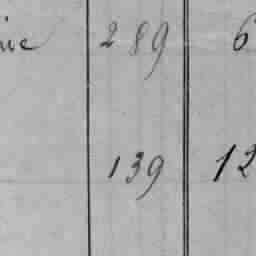 289 6
139 12